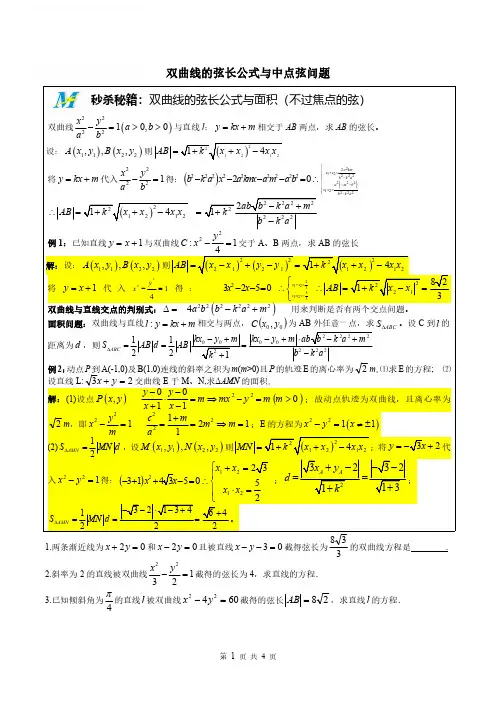 双曲线的弦长公式与中点弦问题
秒杀秘籍：双曲线的弦长公式与面积（不过焦点的弦）
双曲线 x²/a² − y²/b² = 1(a>0,b>0) 与直线 l：y = kx + m 相交于 AB 两点，求 AB 的弦长。
设：A(x₁,y₁),B(x₂,y₂) 则 AB = √1+k² √(x₁+x₂)² −4x₁x₂
将 y = kx + m 代入 x²/a² − y²/b² = 1 得：(b²−k²a²)x²−2a²kmx−a²m²−a²b²=0∴
∴ AB = √1+k² √(x₁+x₂)² −4x₁x₂ = √1+k² 2ab√b²−k²a²+m² / b²−k²a²
例 1：已知直线 y = x +1 与双曲线 C : x² − y²/4 = 1 交于 A、B 两点，求 AB 的弦长
解：设：A(x₁,y₁),B(x₂,y₂) 则 AB = √(x₂−x₁)² + (y₂−y₁)² = √1+k² √(x₁+x₂)² −4x₁x₂
将 y = x +1 代入 x² − y²/4 = 1 得：3x²−2x−5=0 ∴ ∴ AB = √1+k² x₂−x₁ = 8√2/3
双曲线与直线交点的判别式：Δ = 4a²b²(b²−k²a²+m²) 用来判断是否有两个交点问题。
面积问题：双曲线与直线 l : y = kx + m 相交与两点，C(x₀,y₀) 为 AB 外任意一点，求 S_ΔABC 。设 C 到 l 的
距离为 d ，则 S_ΔABC = 1/2 AB d = 1/2 AB kx₀−y₀+m / √k²+1 = kx₀−y₀+m·ab√b²−k²a²+m² / b²−k²a²
例 2：动点 P 到 A(-1,0) 及 B(1,0) 连线的斜率之积为 m(m>0) 且 P 的轨迹 E 的离心率为 √2 m, ⑴求 E 的方程; ⑵
设直线 L: √3x + y = 2 交曲线 E 于 M、N,求 ΔAMN 的面积,
解：(1)设点 P(x,y) y−0/x+1 · y−0/x−1 = m ⇒ mx²−y² = m(m>0)；故动点轨迹为双曲线，且离心率为
√2 m，即 x² − y²/m = 1 c²/a² = 1+m/1 = 2m² ⇒ m=1；E 的方程为 x²−y²=1(x≠±1)
(2) S_ΔAMN = 1/2 MN d ，设 M(x₁,y₁),N(x₂,y₂) 则 MN = √1+k² √(x₁+x₂)² −4x₁x₂；将 y=−√3x+2 代
入 x²−y²=1 得：(−3+1)x²+4√3x−5=0∴ { x₁+x₂=2√3 x₁·x₂=5/2 ； d = √3x_A+y_A−2 / √1+k² = −√3−2 / √1+3 ；
S_ΔAMN = 1/2 MN d
1.两条渐近线为 x+2y=0 和 x−2y=0 且被直线 x−y−3=0 截得弦长为 8√3/3 的双曲线方程是 .
2.斜率为 2 的直线被双曲线 x²/3 − y²/2 = 1 截得的弦长为 4，求直线的方程．
3.已知倾斜角为 π/4 的直线 l 被双曲线 x²−4y²=60 截得的弦长 AB = 8√2，求直线 l 的方程．
第 1 页 共 4 页